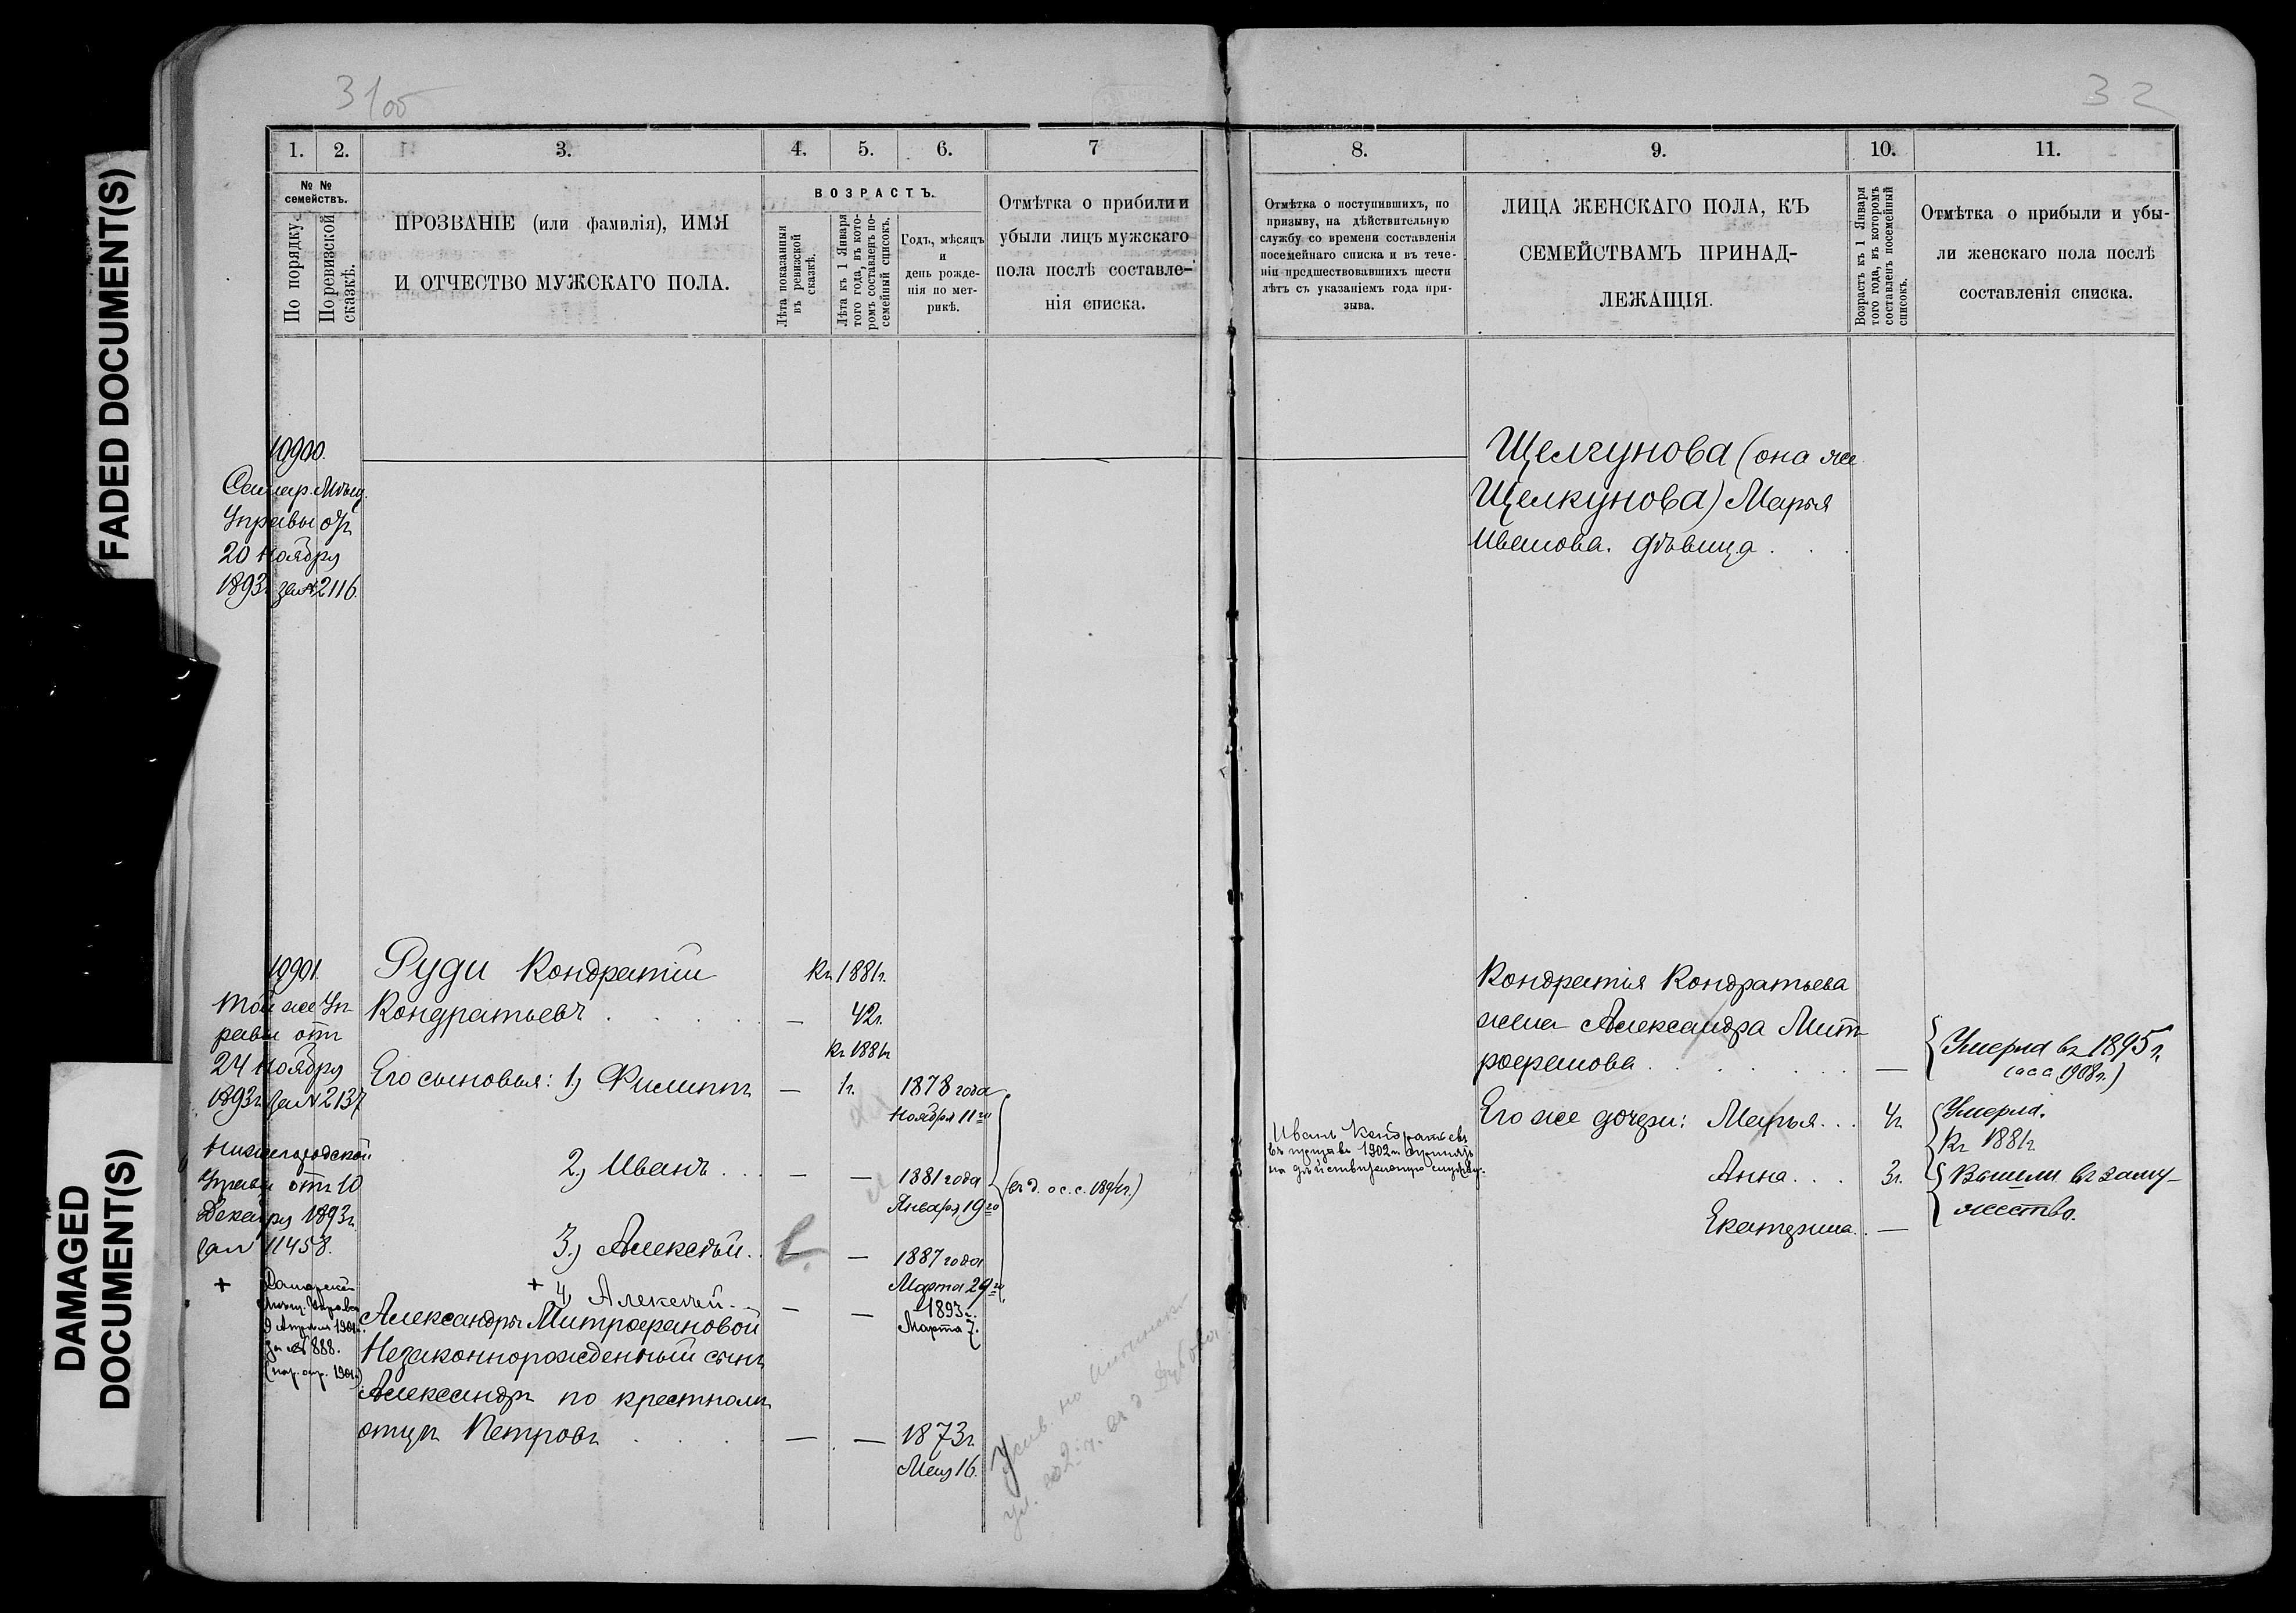 FADED DOCUMENT(S)
DAMAGED
DOCUMENT(S)
31об
1. 2. 3. 4. 5. 6. 7
№ №
семействъ.
По порядку.
По ревизской
сказкѣ.
ПРОЗВАНІЕ (или фамилія), ИМЯ
И ОТЧЕСТВО МУЖСКАГО ПОЛА.
ВОЗРАСТЪ.
Лѣта показанныя
въ ревизской
сказкѣ.
Лѣта къ 1 Января
того года, въ кото-
ромъ составленъ по-
семейный списокъ.
Годъ, мѣсяцъ
и
день рожде-
нія по мет-
рикѣ.
Отмѣтка о прибыли и
убыли лицъ мужскаго
пола послѣ составле-
нія списка.
10900.
Самар. Мѣщ.
Управы отъ
20 Ноября
1893г за № 2116.
10901.
Той же Уп
равы отъ
24 Ноября
1893г. за № 2137
Нижегородской
Управы отъ 10
Декабря 1893г.
за № 11458.
+ Самарской
Мѣщ. Управы
9 Апрѣля 1901г.
за № 888.
Руди Кондратій
Кондратьевъ . . . . —
Къ 1881г.
42г.
Къ 1881г
Его сыновья: 1, Филиппъ — 1г. 1878 года
Ноября 11го
2, Иванъ . . — — 1881 года
Января 19го
3, Алексѣй. . — 1887 года
Марта 29го
+ 4, Алексѣй. . — — 1893г.
Марта 7.
Александры Митрофановой
Незаконнорожденный сынъ
Александръ по крестному
отцу Петровъ . . . . — — 1873г
Мая 16.
32
8. 9. 10. 11.
Отмѣтка о поступившихъ, по
призыву, на дѣйствительную
службу со времени составленія
посемейнаго списка и въ тече-
ніи предшествовавшихъ шести
лѣтъ съ указаніемъ года при-
зыва.
ЛИЦА ЖЕНСКАГО ПОЛА, КЪ
СЕМЕЙСТВАМЪ ПРИНАД-
ЛЕЖАЩІЯ.
Возрастъ къ 1 Января
того года, въ которомъ
составленъ посемейный
списокъ.
Отмѣтка о прибыли и убы-
ли женскаго пола послѣ
составленія списка.
Щелгунова (она же
Щелкунова) Марья
Иванова. дѣвица . . .
Кондратія Кондратьева
жена Александра Мит
рофанова . . . . . . —
Умерла въ 1895г.
Его же дочери: Марья. . . 4г
Умерла.
Къ 1881г
Иванъ Кондратьевъ
въ призывъ 1902г. принятъ
на дѣйствительную службу.
Анна. . . 3г.
Вышли въ заму-
жество.
Екатерина. . —